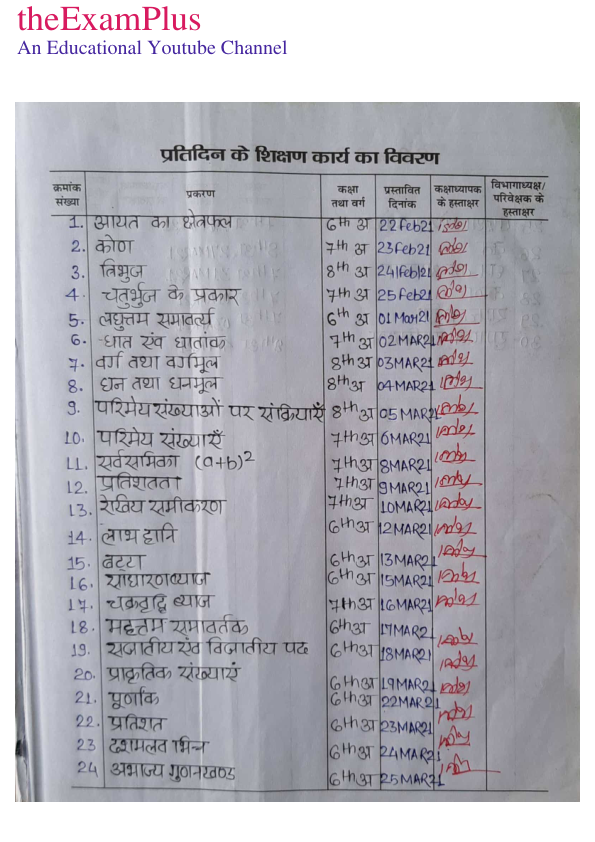 theExamPlus
An Educational Youtube Channel
प्रतिदिन के शिक्षण कार्य का विवरण
क्रमांक संख्या प्रकरण कक्षा तथा वर्ग प्रस्तावित दिनांक कक्षाध्यापक के हस्ताक्षर विभागाध्यक्ष/ परिवेक्षक के हस्ताक्षर
1. आयत का क्षेत्रफल 6th अ 22Feb21
2. कोण 7th अ 23Feb21
3. त्रिभुज 8th अ 24Feb21
4. चतुर्भुज के प्रकार 7th अ 25Feb21
5. लघुत्तम समावर्त्य 6th अ 01Mar21
6. घात संव घातांक 7th अ 02MAR21
7. वर्ग तथा वर्गमूल 8th अ 03MAR21
8. घन तथा घनमूल 8th अ 04MAR21
9. परिमेय संख्याओं पर संक्रियाएँ 8th अ 05MAR21
10. परिमेय संख्याएँ 7th अ 6MAR21
11. सर्वसमिका (a+b)2 7th अ 8MAR21
12. प्रतिशतता 7th अ 9MAR21
13. रेखिय समीकरण 7th अ 10MAR21
14. लाभ हानि 6th अ 12MAR21
15. बट्टा 6th अ 13MAR21
16. साधारण ब्याज 6th अ 15MAR21
17. चक्रवृद्धि ब्याज 7th अ 16MAR21
18. महत्तम समावर्तक 6th अ 17MAR21
19. सजातीय संव विजातीय पद 6th अ 18MAR21
20. प्राकृतिक संख्याएं 6th अ 19MAR21
21. पूर्णांक 6th अ 22MAR21
22. प्रतिशत 6th अ 23MAR21
23 दशमलव भिन्न 6th अ 24MAR21
24 अभाज्य गुणनखण्ड 6th अ 25MAR21